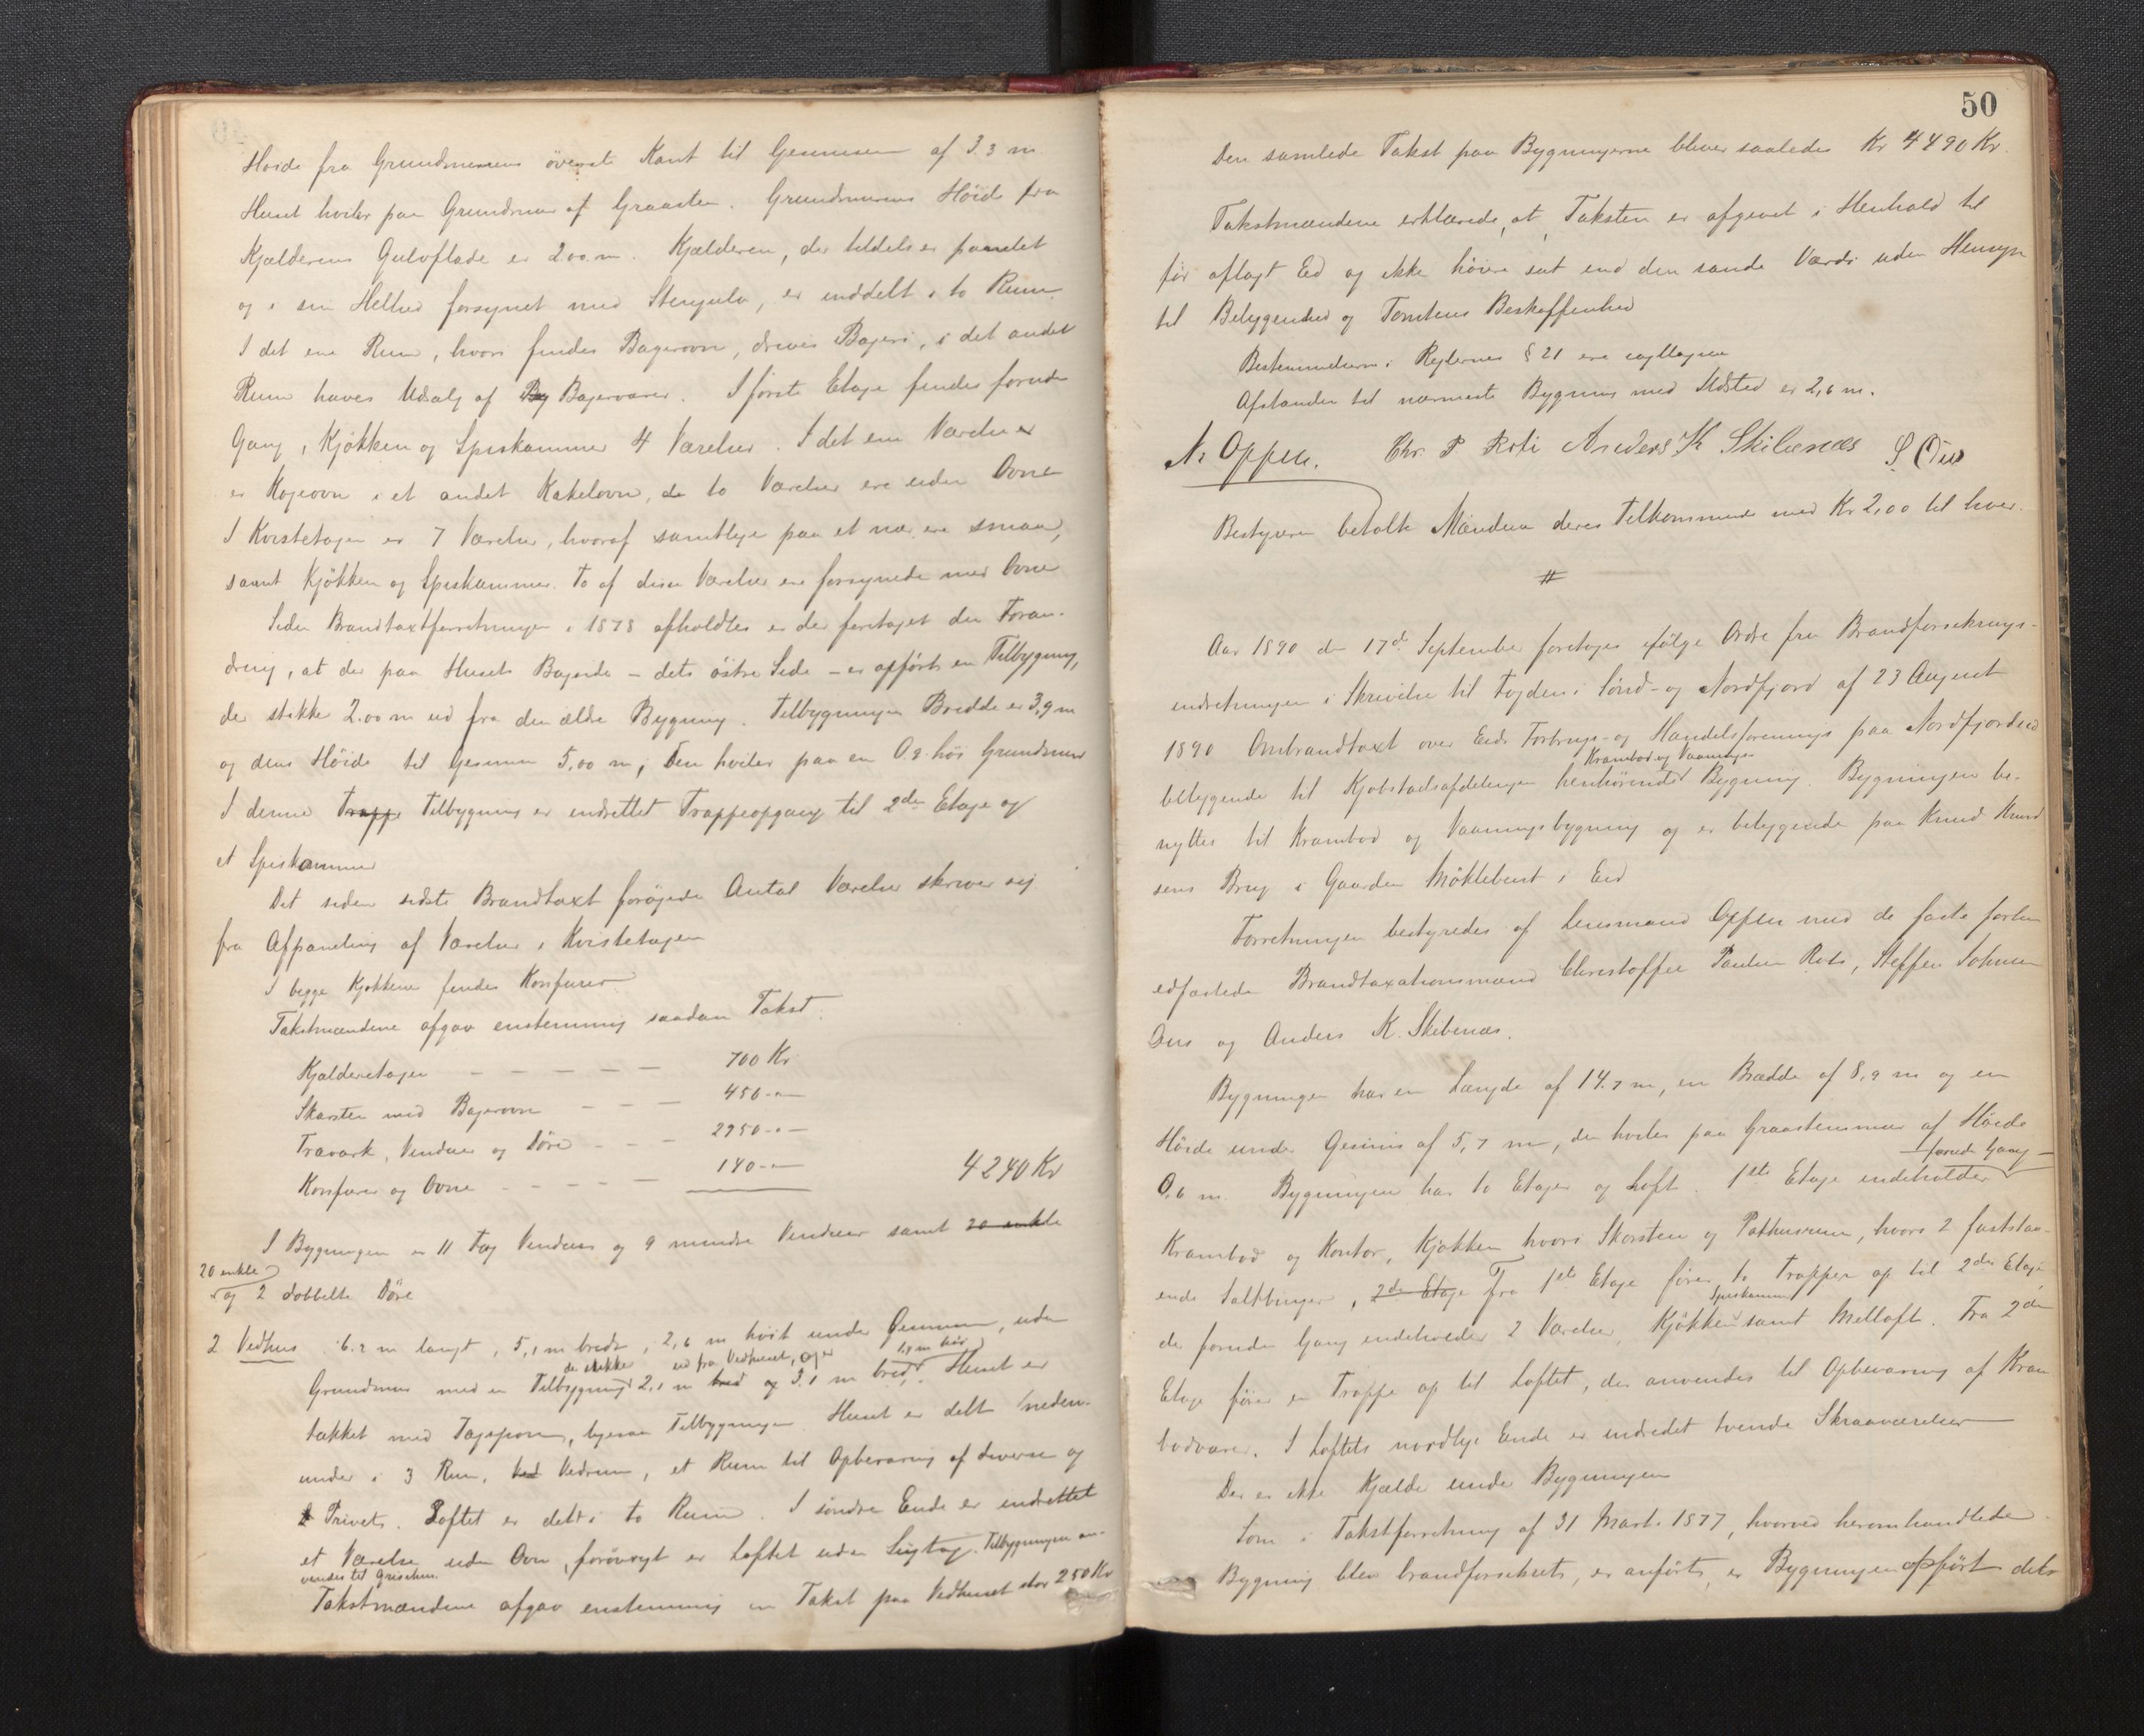 Høide fra Grundmurens øverste Kant til Gesimsen af 3.3 m
Huset hviler paa Grundmur af Graasten. Grundmurens Høide fra
Kjælderens Gulvflade er 2.00 m. Kjælderen, der tildels er panelet
og i sin Helhed forsynet med Stengulv, er inddelt i to Rum.
I det ene Rum, hvori findes Bagerovn, drives Bageri, i det andet
Rum haves Udsalg af Bagervarer. I første Etage findes foruden
Gang, Kjøkken og Spiskammer 4 Værelser. I det ene Værelse
er Kogeovn i et andet Kakelovn, de to Værelser ere uden Ovne
I Kvistetagen er 7 Værelser, hvoraf samtlige paa et nær ere smaa,
samt Kjøkken og Spiskammer. To af disse Værelser ere forsynede med Ovne
Siden Brandtaxtforretningen i 1878 afholdtes er der foretaget den Foran-
dring, at der paa Husets Bagside - dets østre Side - er opført en Tilbygning,
der stikker 2.00 m ud fra den ældre Bygning. Tilbygningens Bredde er 3,9 m
og dens Høide til Gesimsen 5,00 m; Den hviler paa en 0.9 høi Grundmur
I denne Trappe Tilbygning er indrettet Trappeopgang til 2den Etage og
et Spiskammer
Det siden sidste Brandtaxt forøgede Antal Værelser skriver sig
fra Afpaneling af Værelser i Kvistetagen
I begge Kjøkkener findes Komfurer
Takstmændene afgav enstemmig saadan Takst.
Kjælderetagen - - - - - 700 Kr
Skorsten med Bagerovn - - - 450 - " -
Træværk, Vinduer og Døre - - - 2950 - " -
Komfurer og Ovne - - - - - 140 - " - 4240 Kr
I Bygningen er 11 Fag Vinduer og 9 mindre Vinduer samt 20 enkle
20 enkle
og 2 dobbelte Døre
2 Vedhus 6.2 m langt, 5,1 m bredt, 2,6 m høit under Gesimsen, uden
der stikker ud fra Vedhuset, og er 1,8 m høi
Grundmur med en Tilbygning 2,1 m bred og 3.1 m bred. Huset er
tækket med Tagspon, ligesaa Tilbygningen. Huset er delt neden-
under i 3 Rum, Vedrum, et Rum til Opbevaring af diverse og
Privet. Loftet er delt i to Rum. I søndre Ende er indrettet
et Værelse uden Ovn, forøvrigt er Loftet uden Tilbygningen an-
vendes til Grisehus.
Takstmændene afgav enstemmig en Takst paa Vedhuset stor 250 Kr
50
Den samlede Takst paa Bygningerne bliver saaledes Kr 4490 Kr.
Takstmændene erklærede, at Taksten er afgivet i Henhold til
før aflagt Ed og ikke høiere sat end den sande Værdi uden Hensyn
til Beliggenhed og Tomtens Beskaffenhed
Bestemmelserne i Reglernes § 21 ere iagttagne
Afstanden til nærmeste Bygning med Ildsted er 2,6 m.
N. Oppen. Chr. P Roti Anders K Skibenæs S Ous
Bestyreren betalte Mændene deres Tilkommende med Kr 2,00 til hver.
#
Aar 1890 den 17de September foretoges ifølge Ordre fra Brandforsikrings-
indretningen i Skrivelse til Fogden i Sønd- og Nordfjord af 23 August
1890 Ombrandtaxt over Eids Forbrugs- og Handelsforenings paa Nordfjordeid
Krambod og Vaanings
beliggende til Kjøbstadsafdelingen henhørende Bygning. Bygningen be-
nyttes til Krambod og Vaaningsbygning og er beliggende paa Knud Knud
sens Brug i Gaarden Møklebust i Eid
Forretningen bestyredes af Lensmand Oppen med de faste forhen
edfæstede Brandtaxationsmænd Christoffer Paulsen Roti, Steffen Johnsen
Ous og Anders K. Skibenæs.
Bygningen har en Længde af 14.7 m, en Bredde af 8,9 m og en
Høide under Gesims af 5,7 m, den hviler paa Graastensmur af Høide
- foruden Gang -
0,6 m. Bygningen har to Etager og Loft. 1ste Etage indeholder
Krambod og Kontor, Kjøkken hvori Skorsten og Pakhusrum, hvori 2 faststaa-
ende Saltbinger, 2den Etage Fra 1ste Etage fører to Trapper op til 2den Etage,
Spiskammer
der foruden Gang indeholder 2 Værelser, Kjøkken samt Melloft. Fra 2den
Etage fører en Trappe op til Loftet, der anvendes til Opbevaring af Kram
bodvarer. I Loftets nordlige Ende er indredet tvende Skraaværelser
Der er ikke Kjælder under Bygningen
Som i Takstforretning af 31 Mart. 1877, hvorved heromhandlede
Bygning blev brandforsikret, er anført, er Bygningen opført dels